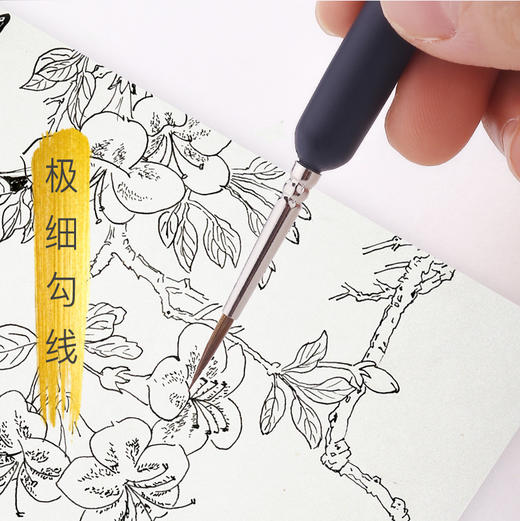 极细勾线